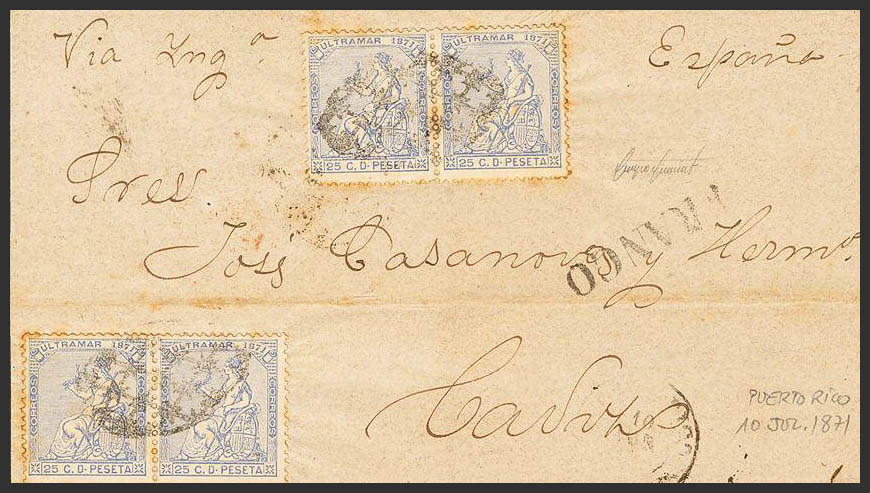 Via Ing.ª
España
ULTRAMAR 1871 ULTRAMAR 1871
CORREOS CORREOS
25 C. D. PESETA 25 C. D. PESETA
Sres.
FRANCO
José Casanova y Herm.º
Cadiz
ULTRAMAR 1871 ULTRAMAR 1871
CORREOS CORREOS
25 C. D. PESETA 25 C. D. PESETA
PUERTO RICO
10 JUL. 1871